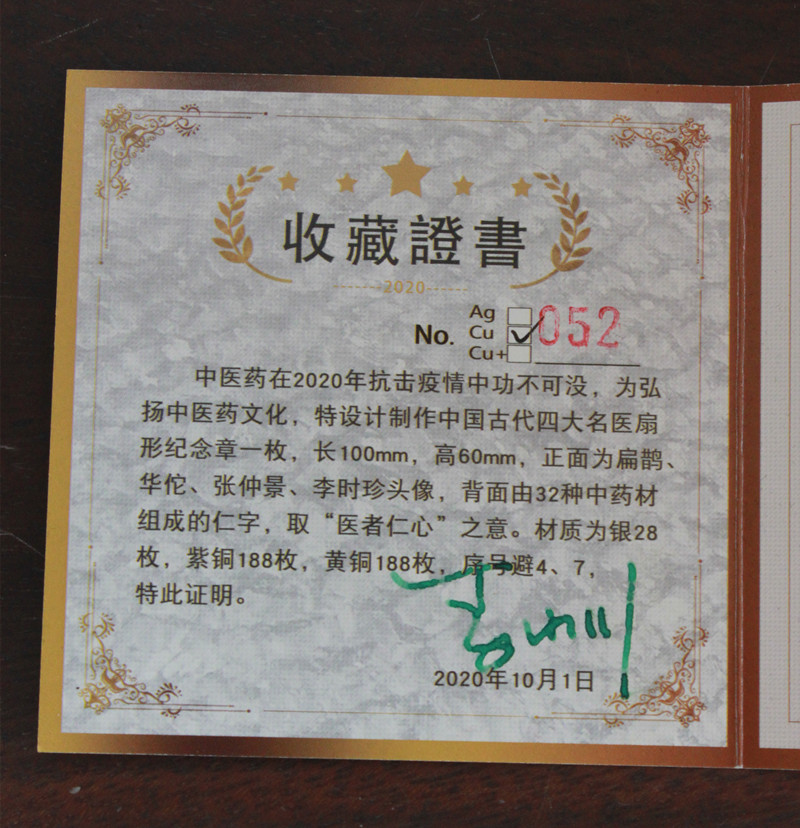 收藏證書
2020
No.
Ag
Cu 052
Cu+
中医药在2020年抗击疫情中功不可没，为弘
扬中医药文化，特设计制作中国古代四大名医扇
形纪念章一枚，长100mm，高60mm，正面为扁鹊、
华佗、张仲景、李时珍头像，背面由32种中药材
组成的仁字，取“医者仁心”之意。材质为银28
枚，紫铜188枚，黄铜188枚，序号避4、7，
特此证明。
2020年10月1日